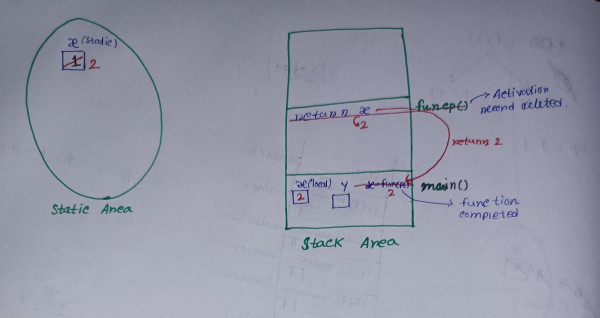 x (static)
1 2
Static Area
return x
2
funcp()
Activation
record deleted.
return 2
x(local) y
2
x=funcp()
2
main()
function
completed
Stack Area